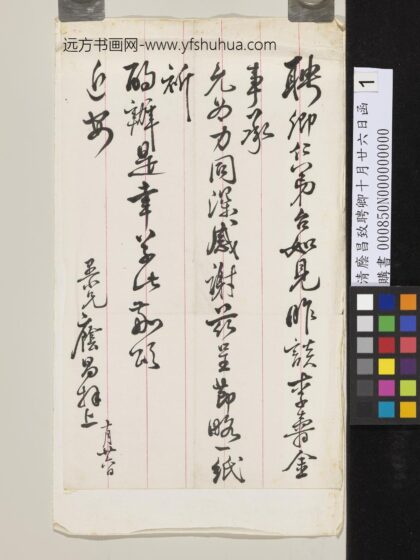 远方书画网-www.yfshuhua.com
聘卿仁弟台如見昨談李壽金
事承
允为力同深感谢兹呈節略一纸
祈
酌辦是幸草此敬頌
近安
愚兄廕昌拜上
十月廿六日
1
清廕昌致聘卿十月廿六日函
購書 000850N000000000